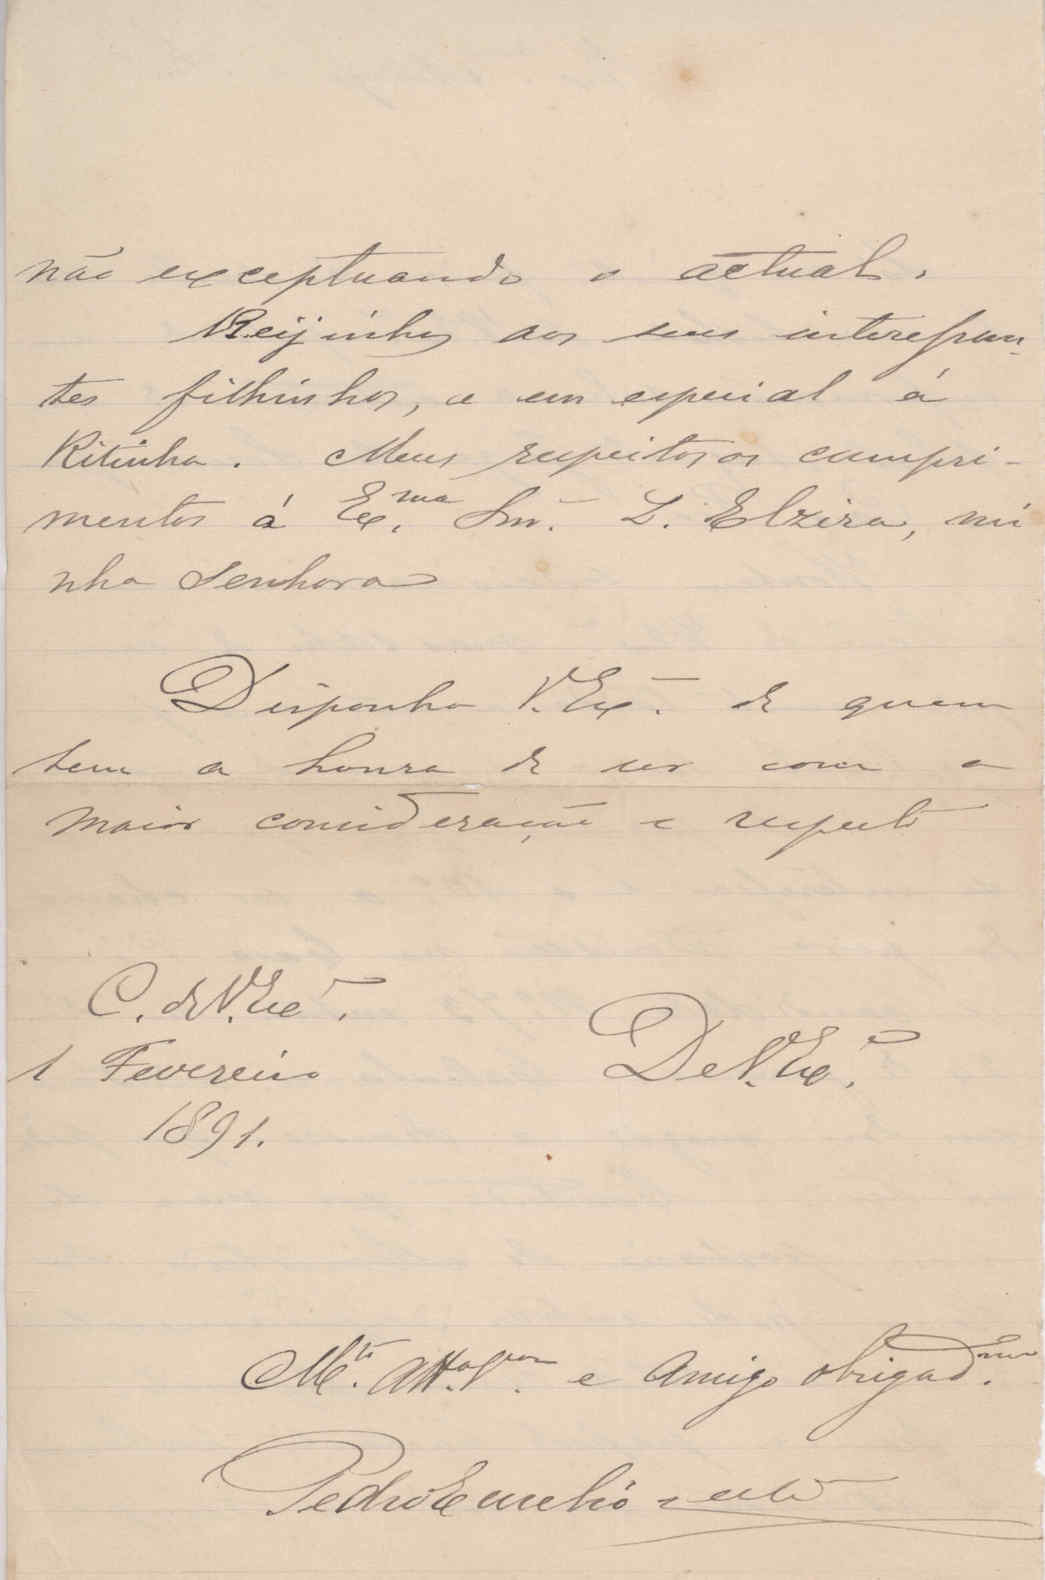 não exceptuando o actual.
Beijinhos aos seus interessan-
tes filhinhos, e em especial á
Ritinha. Meus respeitosos cumpri-
mentos á Ex.ma Snr.ª D. Elzira, mi
nha Senhora
Disponha V. Ex.ª de quem
tem a honra de ser com a
maior consideração e respeito
C. de V. Ex.ª
1 Fevereiro
1891.
De V. Ex.ª
M.to Att.o V.or e Amigo obrigad.mo
Pedro